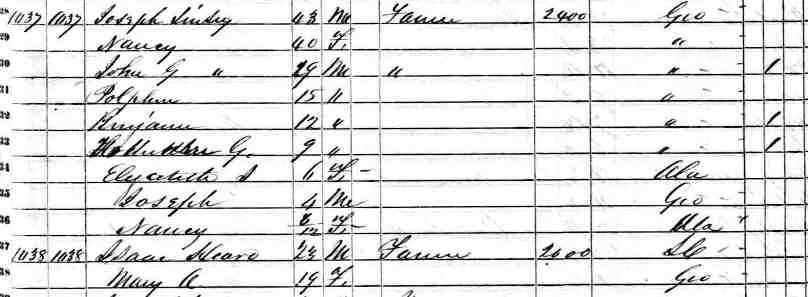 28 1037 1037 Joseph Lindsey 43 M Farmer 2400 Geo
29 Nancy 40 F "
30 John G " 29 M " " 1
31 15 " "
32 Benjamin 12 " " 1
33 G. 9 " " 1
34 Elizabeth 6 F Ala
35 Joseph 4 M Geo
36 Nancy 2/12 F Ala
37 1038 1038 Isaac Heard 23 M Farmer 2000 SC
38 Mary A 19 F Geo